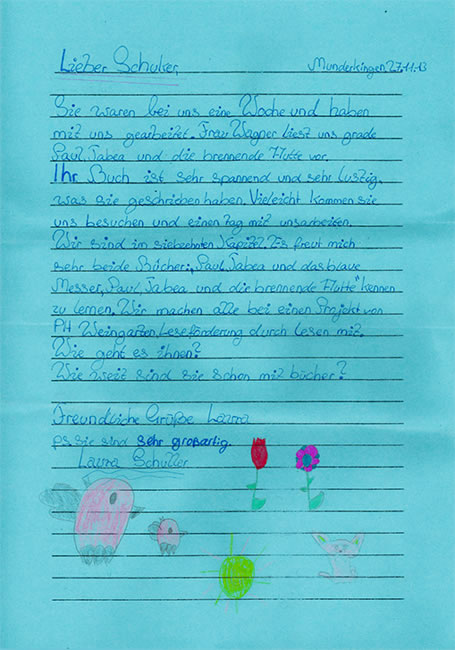 Lieber Schulser, Munderkingen 27.11.13
Sie waren bei uns eine Woche und haben
mit uns gearbeitet. Frau Wagner liest uns grade
Paul, Tabea und die brennende Hütte vor.
Ihr Buch ist sehr spannend und sehr lustig,
was sie geschrieben haben. Vieleicht kommen sie
uns besuchen und einen Tag mit unsarbeiten.
Wir sind im siebzehnten Kapitel. Es freut mich
sehr beide Bücher:„Paul, Tabea und das blaue
Messer, Paul, Tabea und die brennende Hütte" kennen
zu lernen. Wir machen alle bei einen Projekt von
PH Weingarten, Leseförderung durch lesen mit.
Wie geht es ihnen?
Wie weit sind sie schon mit bücher?
Freundliche Grüße Laura
ps sie sind sehr großartig.
Laura Schuller